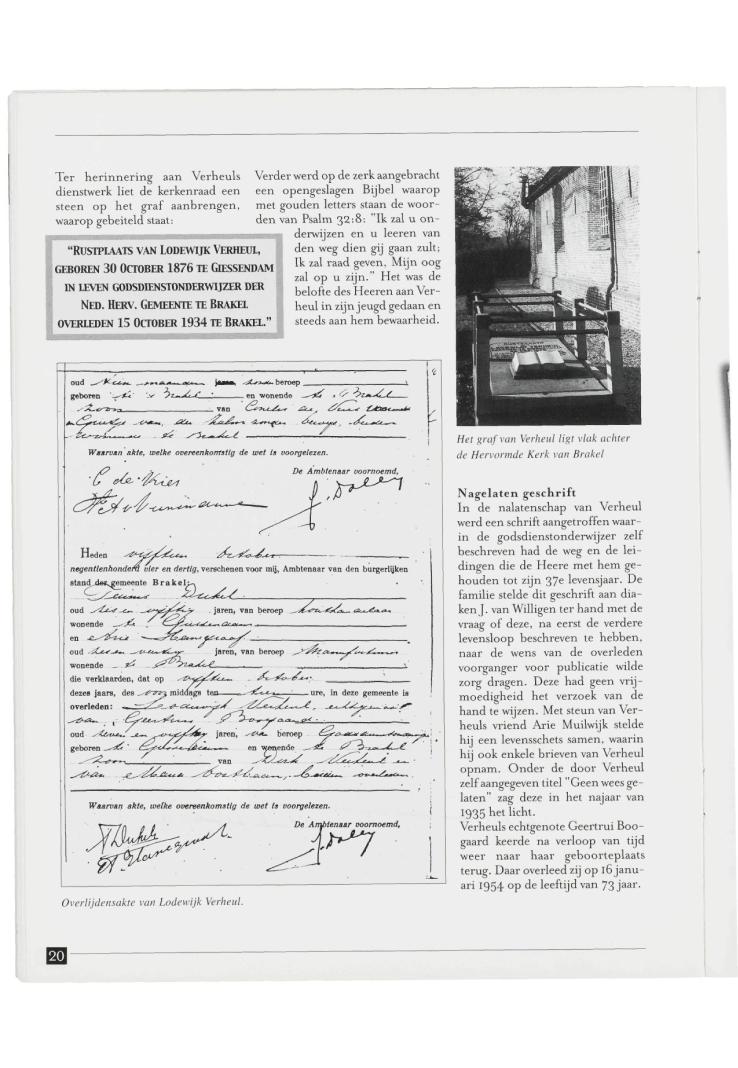 Ter herinnering aan Verheuls
dienstwerk liet de kerkenraad een
steen op het graf aanbrengen,
waarop gebeiteld staat:
"RUSTPLAATS VAN LODEWIJK VERHEUL,
GEBOREN 30 OCTOBER 1876 TE GIESSENDAM
IN LEVEN GODSDIENSTONDERWIJZER DER
NED. HERV. GEMEENTE TE BRAKEL
OVERLEDEN 15 OCTOBER 1934 TE BRAKEL."
Verder werd op de zerk aangebracht
een opengeslagen Bijbel waarop
met gouden letters staan de woor-
den van Psalm 32:8: "Ik zal u on-
derwijzen en u leeren van
den weg dien gij gaan zult;
Ik zal raad geven, Mijn oog
zal op u zijn." Het was de
belofte des Heeren aan Ver-
heul in zijn jeugd gedaan en
steeds aan hem bewaarheid.
oud maanden beroep
geboren te Brakel en wonende te Brakel
zoon van
wonende te Brakel
Waarvan akte, welke overeenkomstig de wet is voorgelezen.
De Ambtenaar voornoemd,
C de Vries
Heden vijftien October
negentienhonderd vier en dertig, verschenen voor mij, Ambtenaar van den burgerlijken
stand der gemeente Brakel:
Teunis
oud zes en vijftig jaren, van beroep
wonende te Giessendam
en Arie
oud zes en veertig jaren, van beroep
wonende te Brakel
die verklaarden, dat op vijftien October
dezes jaars, des voormiddags ten ure, in deze gemeente is
overleden: Lodewijk Verheul, echtgenoot
van Geertrui Boogaard
oud zeven en vijftig jaren, van beroep Godsdienstonderwijzer
geboren te Giessendam en wonende te Brakel
zoon van Dirk Verheul en
van Maria beiden overleden.
Waarvan akte, welke overeenkomstig de wet is voorgelezen.
De Ambtenaar voornoemd,
Overlijdensakte van Lodewijk Verheul.
Het graf van Verheul ligt vlak achter
de Hervormde Kerk van Brakel
Nagelaten geschrift
In de nalatenschap van Verheul
werd een schrift aangetroffen waar-
in de godsdienstonderwijzer zelf
beschreven had de weg en de lei-
dingen die de Heere met hem ge-
houden tot zijn 37e levensjaar. De
familie stelde dit geschrift aan dia-
ken J. van Willigen ter hand met de
vraag of deze, na eerst de verdere
levensloop beschreven te hebben,
naar de wens van de overleden
voorganger voor publicatie wilde
zorg dragen. Deze had geen vrij-
moedigheid het verzoek van de
hand te wijzen. Met steun van Ver-
heuls vriend Arie Muilwijk stelde
hij een levensschets samen, waarin
hij ook enkele brieven van Verheul
opnam. Onder de door Verheul
zelf aangegeven titel "Geen wees ge-
laten" zag deze in het najaar van
1935 het licht.
Verheuls echtgenote Geertrui Boo-
gaard keerde na verloop van tijd
weer naar haar geboorteplaats
terug. Daar overleed zij op 16 janu-
ari 1954 op de leeftijd van 73 jaar.
20